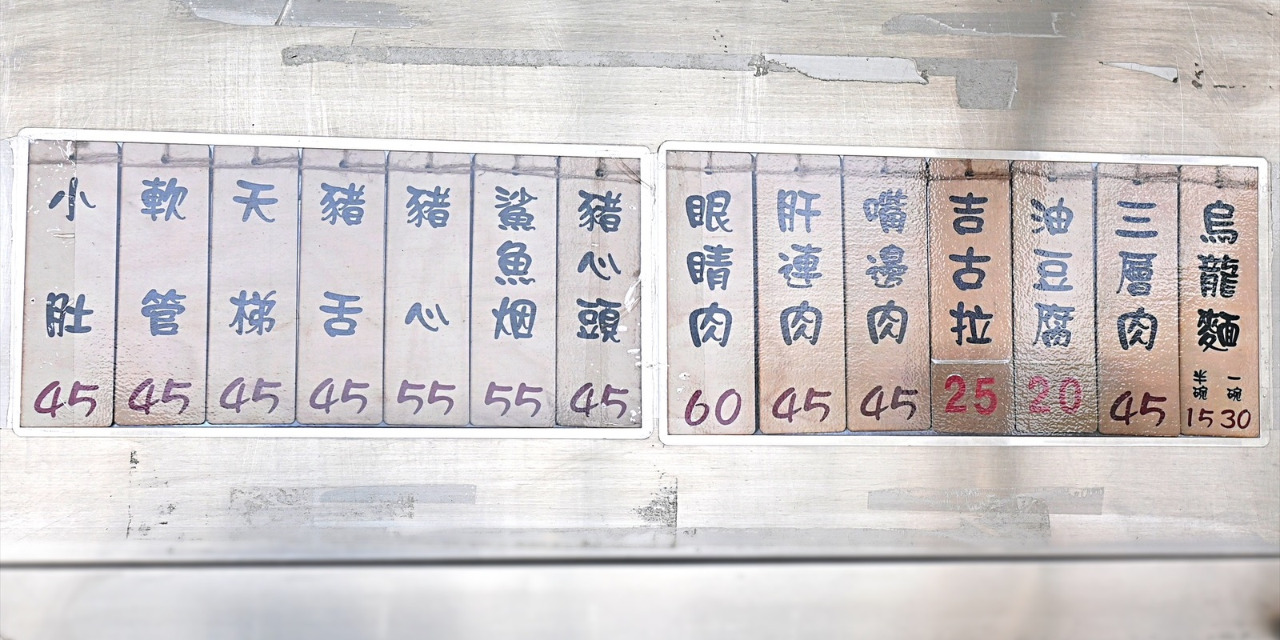 小肚 45
軟管 45
天梯 45
豬舌 45
豬心 55
鯊魚烟 55
豬心頭 45
眼睛肉 60
肝連肉 45
嘴邊肉 45
吉古拉 25
油豆腐 20
三層肉 45
烏龍麵 半碗 15 一碗 30